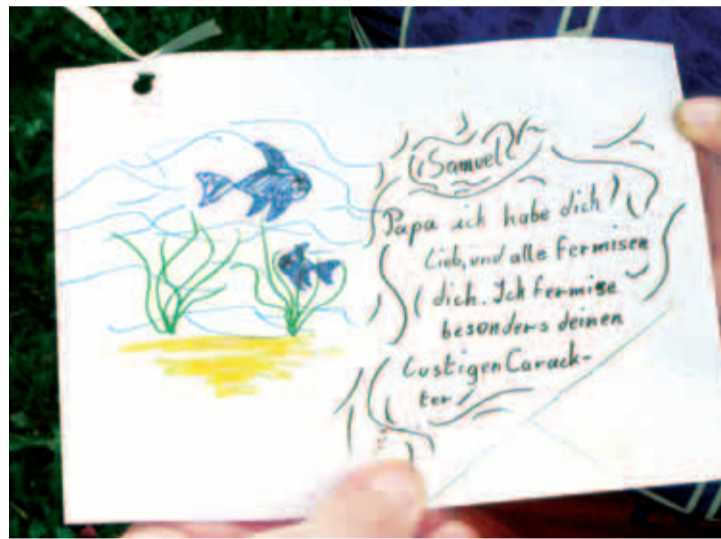 Samuel
Papa ich habe dich
Lieb, und alle fermisen
dich. Ich fermise
besonders deinen
lustigen Carack-
ter